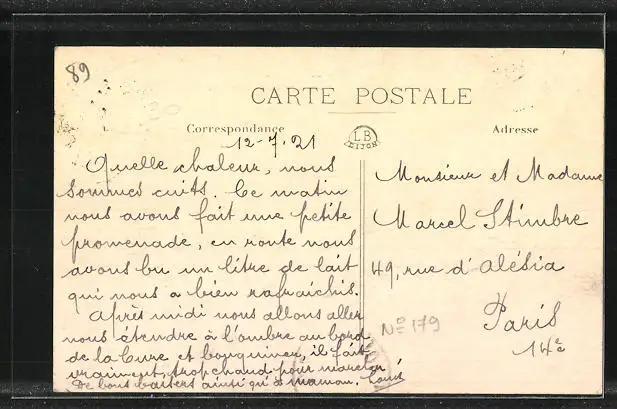 89
CARTE POSTALE
Correspondance
LB
DIJON
Adresse
12-7-21
Quelle chaleur, nous
sommes cuits. Ce matin
nous avons fait une petite
promenade, en route nous
avons bu un litre de lait
qui nous a bien rafraichis.
Après midi nous allons aller
nous étendre à l'ombre au bord
de la Cure et bouquiner, il fait
vraiment trop chaud pour marcher.
De bons baisers ainsi qu'à maman.
Monsieur et Madame
Marcel Stimbre
49, rue d'Alésia
Paris
14e
No 179